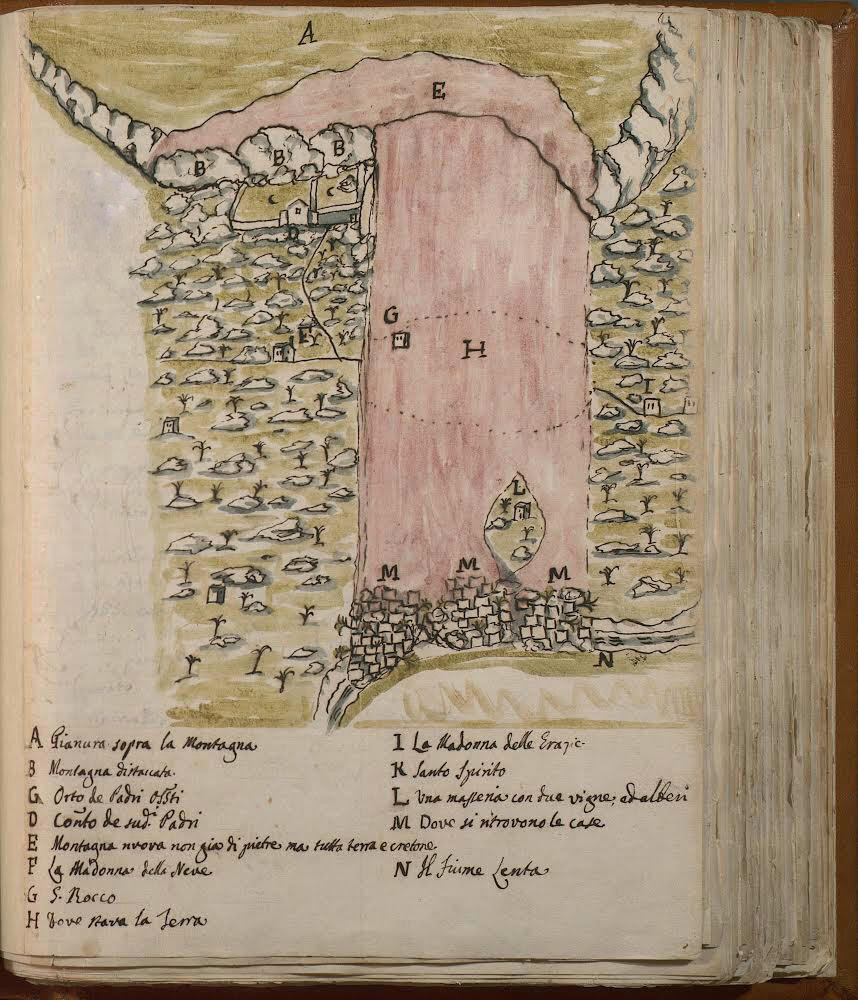 A
E
B
B
B
C
C
D
G
H
F
I
L
M
M
M
N
A Pianura sopra la Montagna
B Montagna distaccata.
G Orto de Padri Ossti
D Conto de sud. Padri
E Montagna nuova non gia di pietre ma tutta terra e cretone.
F La Madonna della Neve
G S. Rocco
H Dove stava la Terra
I La Madonna delle
K Santo Spirito
L Una masseria con due vigne, ed alberi
M Dove si ritrovono le case
N Il fiume Lenta